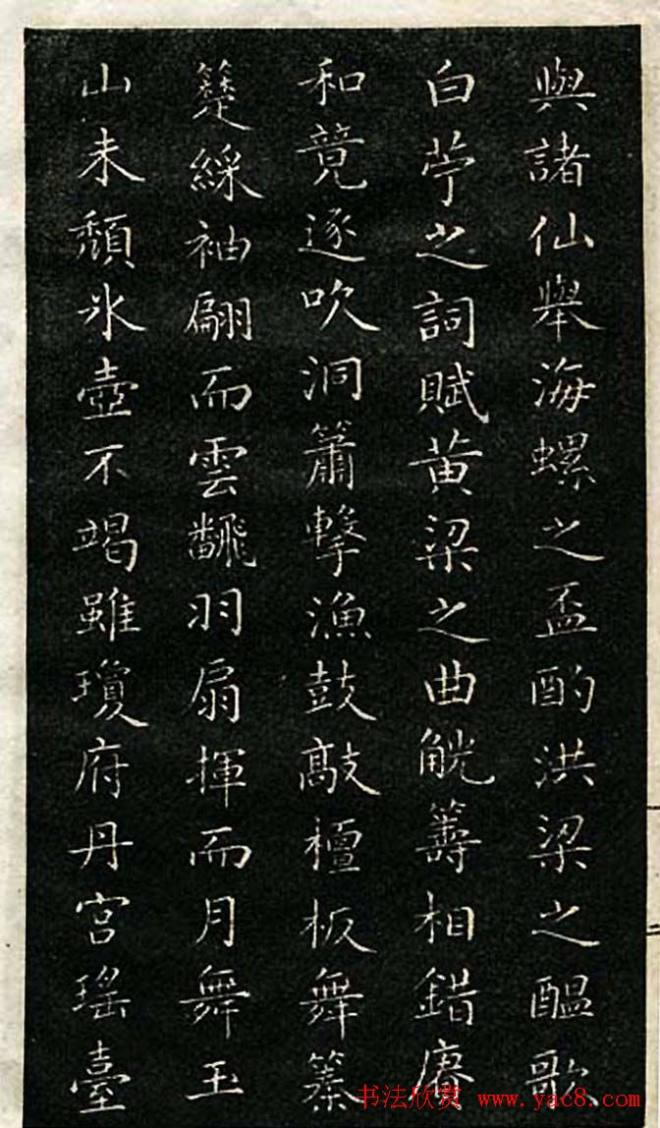 與諸仙舉海螺之盃酌洪梁之醞歌
白苧之詞賦黃粱之曲觥籌相錯賡
和競逐吹洞簫擊漁鼓敲檀板舞
綵袖翩而雲飜羽扇揮而月舞玉
山未頹氷壺不竭雖瓊府丹宮瑤臺
书法欣赏 www.yac8.com